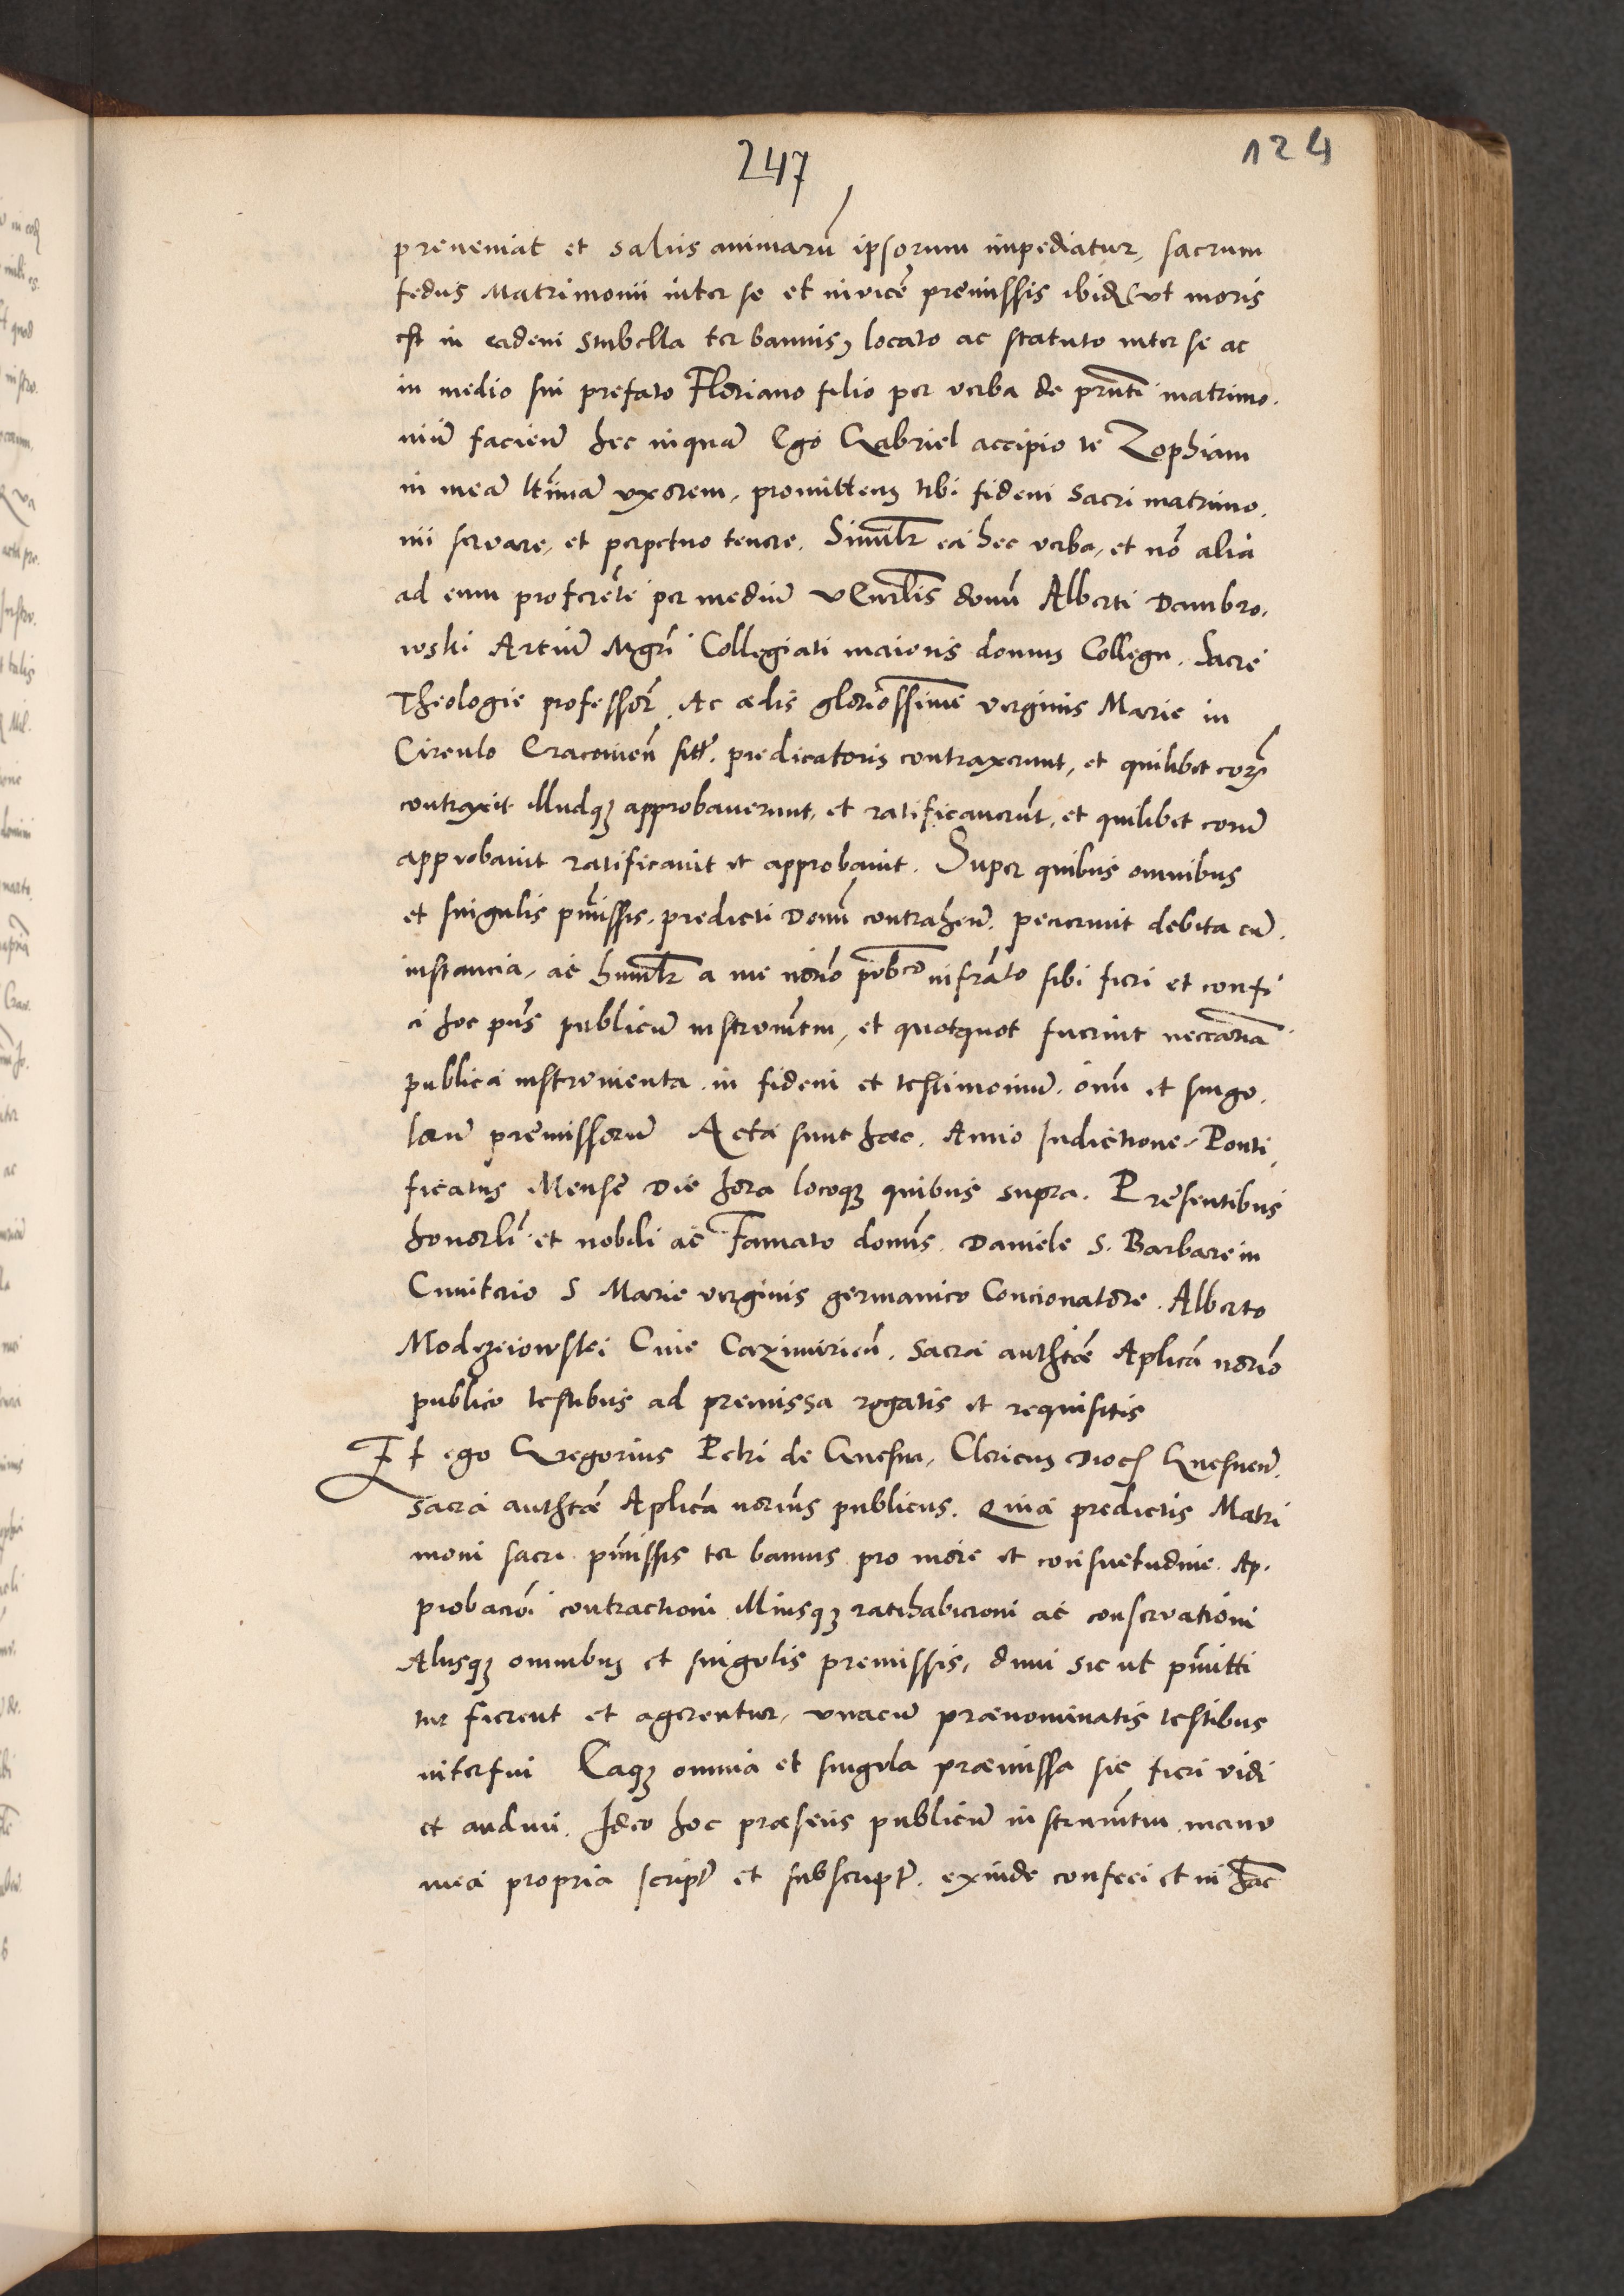 247
124
preveniat et salus animarū ipsorum impediatur, sacrum
fedus Matrimonii inter se et invicē premissis ibidē ut moris
est in eadem stubella ter bannis, locato ac statuto inter se ac
in medio sui prefato Floriano filio per verba de pr̄nti matrimo.
niū facieñ hec inquā Ego Gabriel accipio te Zophiam
in meā ltīmā uxorem, promittens tibi fidem sacri matrimo.
nii servare, et perpetuo tenere. Similr̄ ea hec verba, et nō alia
ad eum proferēte per mediū vēnrlis domī Alberti Dambro.
wski Artiū Mgrī Collegiati maioris domus Collegii. Sacre
Theologie professōr. Ac aedis gloriosissime virginis Marie in
Circulo Cracovieñ sitē. predicatoris contraxerunt, et quilibet eorū
contraxit illudqȝ approbaverunt, et ratificaverūt, et quilibet eorū
approbavit ratificavit et approbavit. Super quibus omnibus
et singulis pm̄issis, predicti Domī contraheñ. pecierunt debita cū.
instancia, ac humilr̄ a me nōrio pub̄co infrāto sibi fieri et confi
ci hoc pn̄s publicū instrumm̄tm, et quotquot fuerint neccāria
publica instrumenta in fidem et testimoniū. om̄ et singo.
lorū premissorū Acta sunt haec. Anno Indictione, Ponti
ficatus Mense Die hora locoqȝ quibus supra. Presentibus
honorli et nobili ac Famato domīs. Daniele S. Barbare in
Cimiterio S Marie virginis germanico Concionatore. Alberto
Modzeiowski Cive Cazimirieñ. sacra authtē Aplicā nōrio
publico testibus ad premissa rogatis et requisitis
Et ego Gregorius Petri de Gnesna, Clericus Dioc̄ Gnesneñ.
sacra authtē Aplicā nōrius publicus. Quia predictis Matri
moni sacri pm̄issis ter bannis pro more et consuetudine. Ap.
probacioī contractioni illiusqȝ ratihabicioni ac conservationi
Aliisqȝ omnibus et singulis premissis, dum sic ut pm̄itti
tur fierent et agerentur, unacū praenominatis testibus
interfui Eaqȝ omnia et singula praemissa sic fieri vidi
et audivi. Ideo hoc praesens publicū instrumm̄tm manu
mea propria script̄ et subscript̄. exinde confeci et in hāc